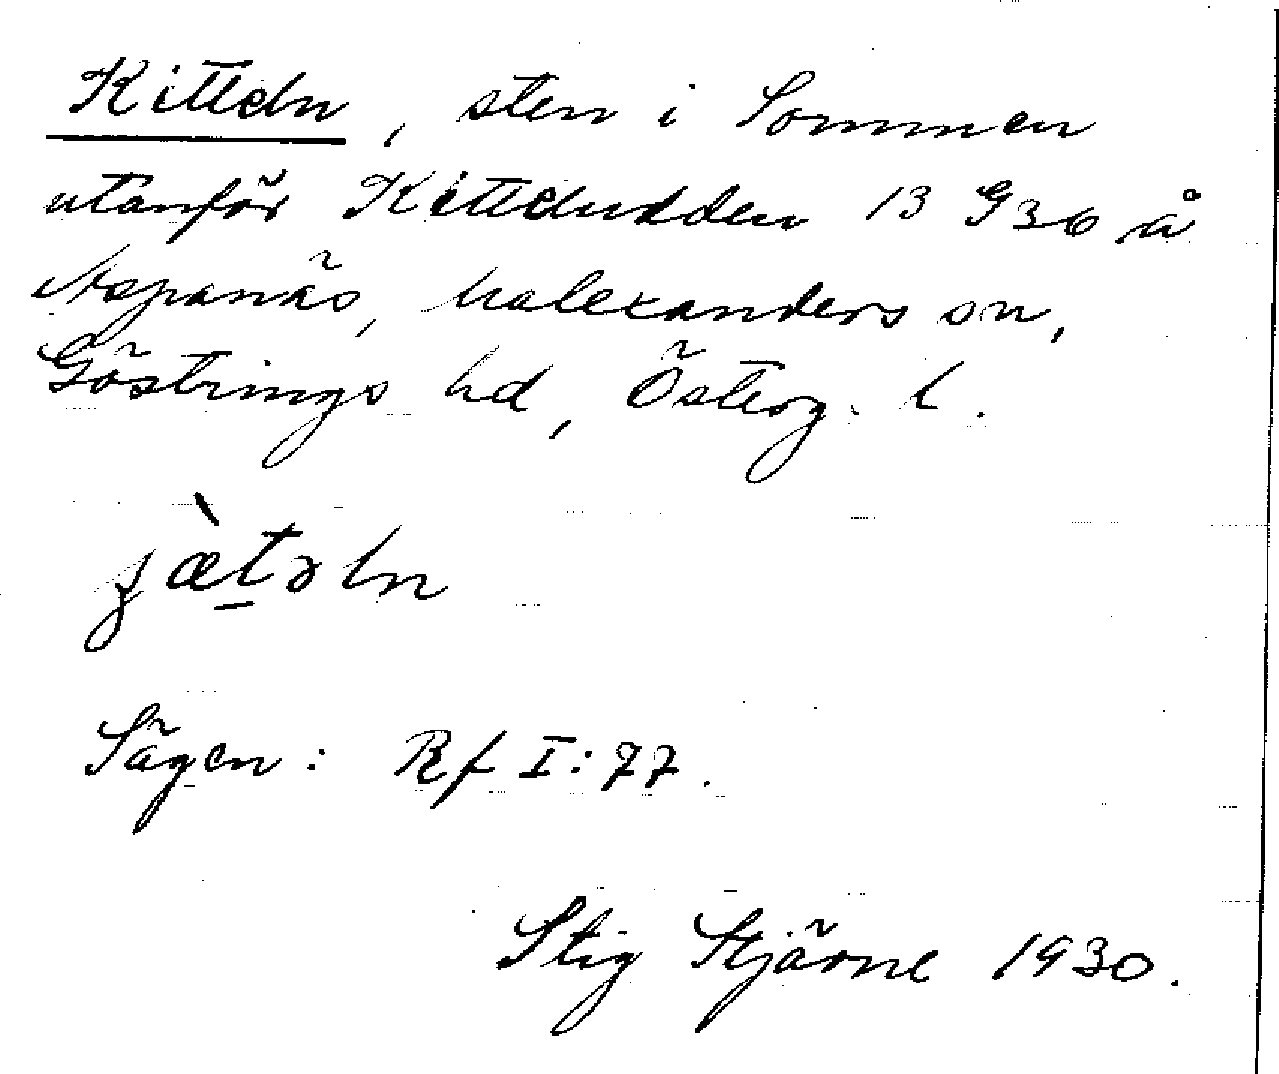 Kitteln, sten i Sommen
utanför Kitteludden 13 G36 å
Aspanäs, Malexanders sn,
Göstrings hd, Österg. l.
jæ̀təln
Sägen: Rf I:77.
Stig Stjärne 1930.